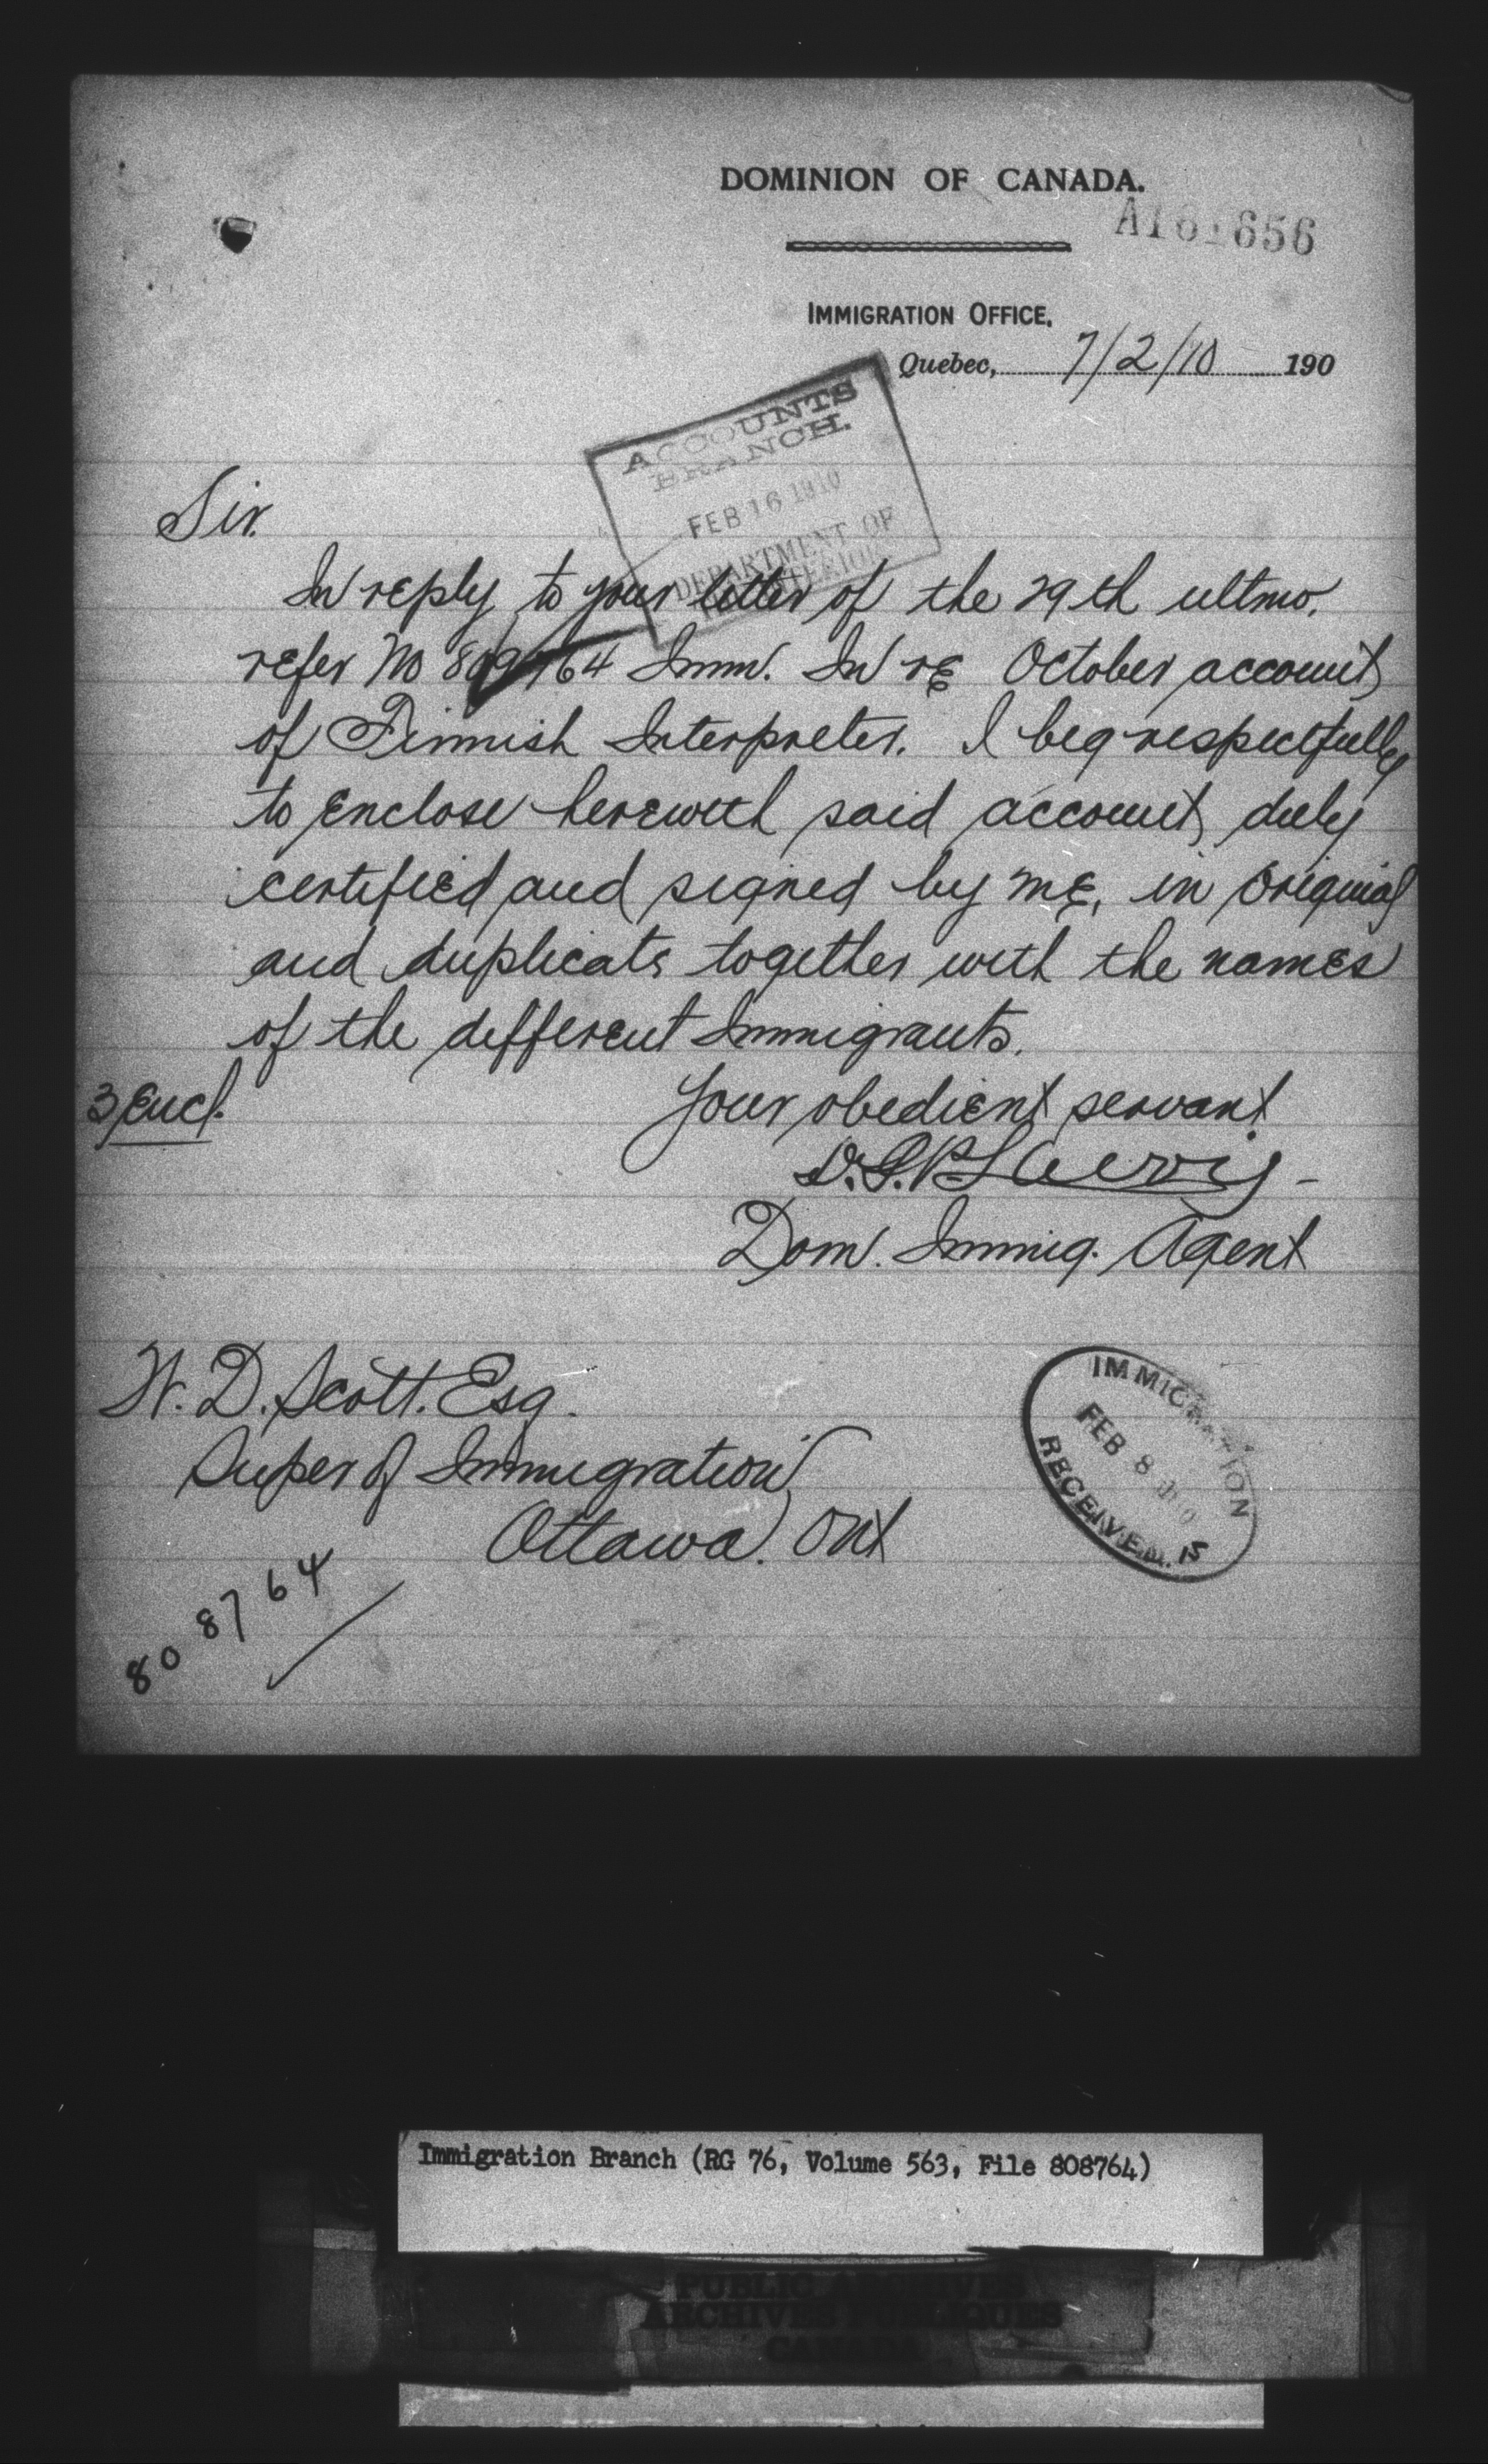 DOMINION OF CANADA.
A161656
IMMIGRATION OFFICE.
Quebec, 7/2/10 190
ACCOUNTS
BRANCH.
FEB 16 1910
DEPARTMENT OF
INTERIOR
Sir.
In reply to your letter of the 29th ultmo.
refer No 809764 Imm. In re October account
of Finnish Interpreter. I beg respectfully
to enclose herewith said account, duly
certified and signed by me, in original
and duplicate together with the names
of the different Immigrants.
3 Encl.
Your obedient servant
Dom. Immig. Agent
W. D. Scott. Esq.
Super of Immigration
Ottawa. Ont
IMMIGRATION
FEB 8 1910
RECEIVED.
808764
Immigration Branch (RG 76, Volume 563, File 808764)
PUBLIC ARCHIVES
ARCHIVES PUBLIQUES
CANADA